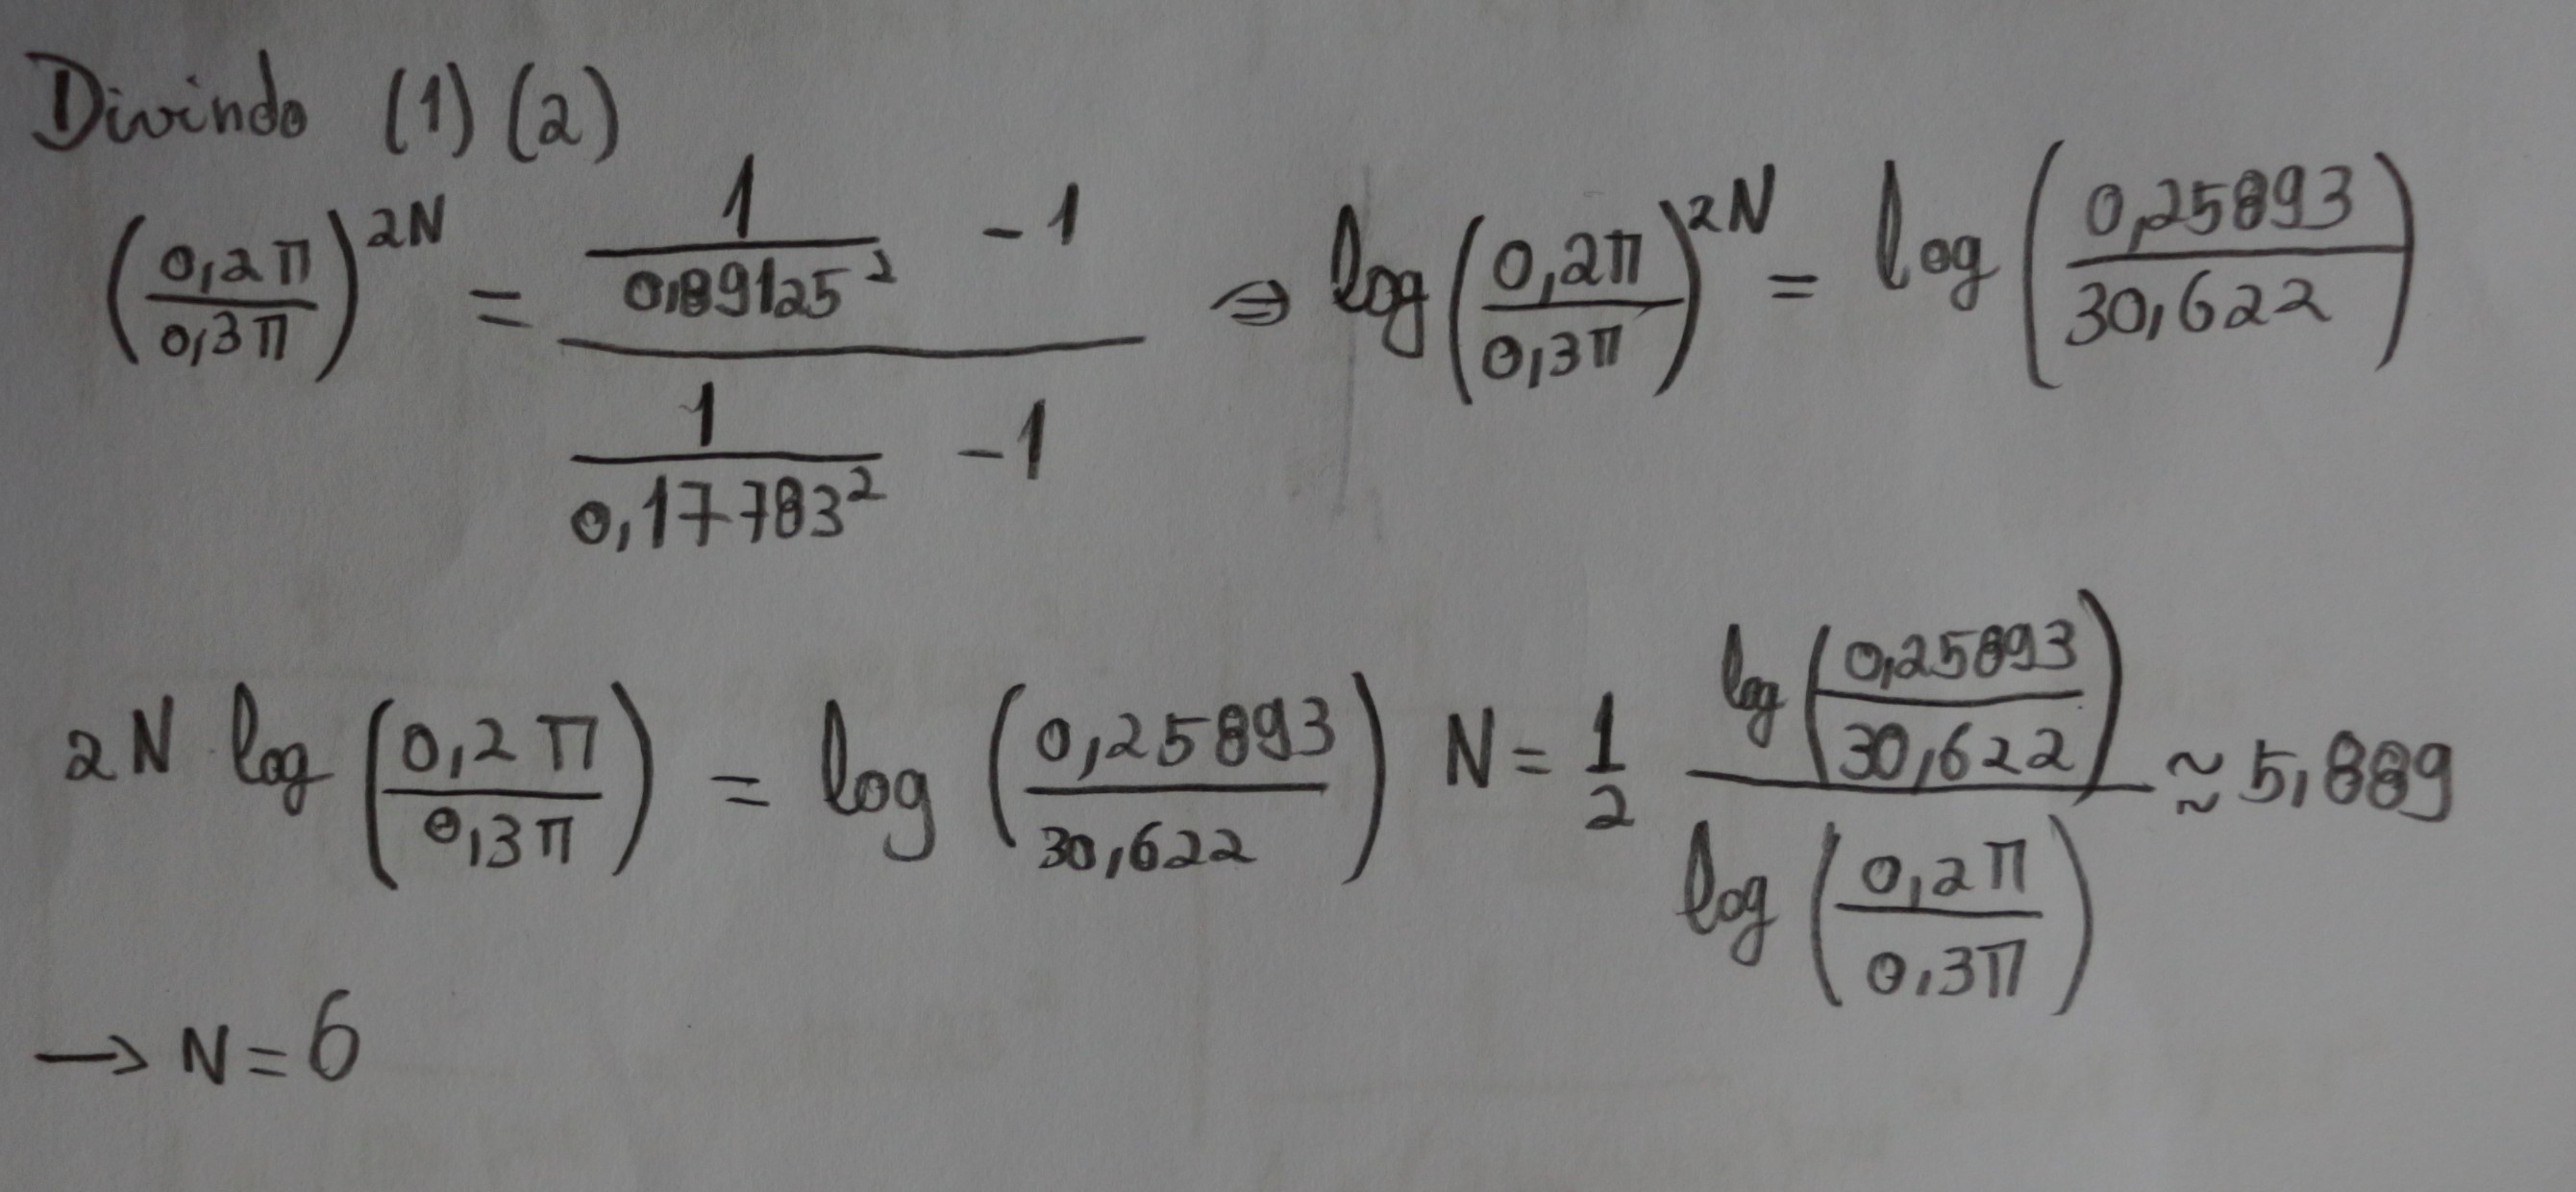 Divindo (1) (2)
(0,2π/0,3π)^2N = (1/0,89125² - 1)/(1/0,17783² - 1) ⇒ log(0,2π/0,3π)^2N = log(0,25893/30,622)
2N log(0,2π/0,3π) = log(0,25893/30,622) N = 1/2 log(0,25893/30,622)/log(0,2π/0,3π) ≈ 5,889
→ N = 6